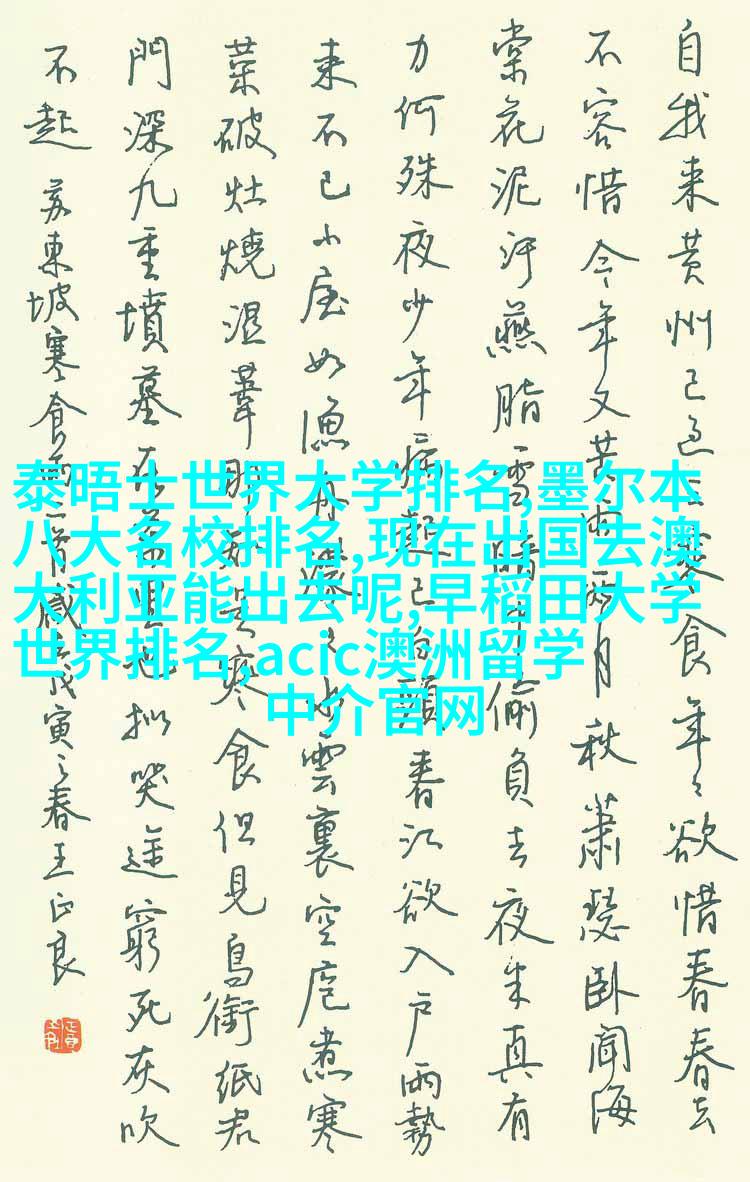 自我来黄州已過三寒食年々欲惜春春去
不容惜今年又苦雨兩月秋蕭瑟卧聞海
棠花泥汙燕脂雪暗中偷負去夜半真有
力何殊夜少年病起已白頭春江欲入户雨勢
来不已小屋如漁舟濛々水雲裏空庖煮寒
菜破灶燒濕葦那知是寒食但見烏銜紙君
門深九重墳墓在萬里也拟哭途窮死灰吹
不起 苏東坡寒食雨二首歲戊寅之春王正良
泰晤士世界大学排名,墨尔本
八大名校排名,现在出国去澳
大利亚能出去呢,早稻田大学
世界排名,acic澳洲留学
中介官网